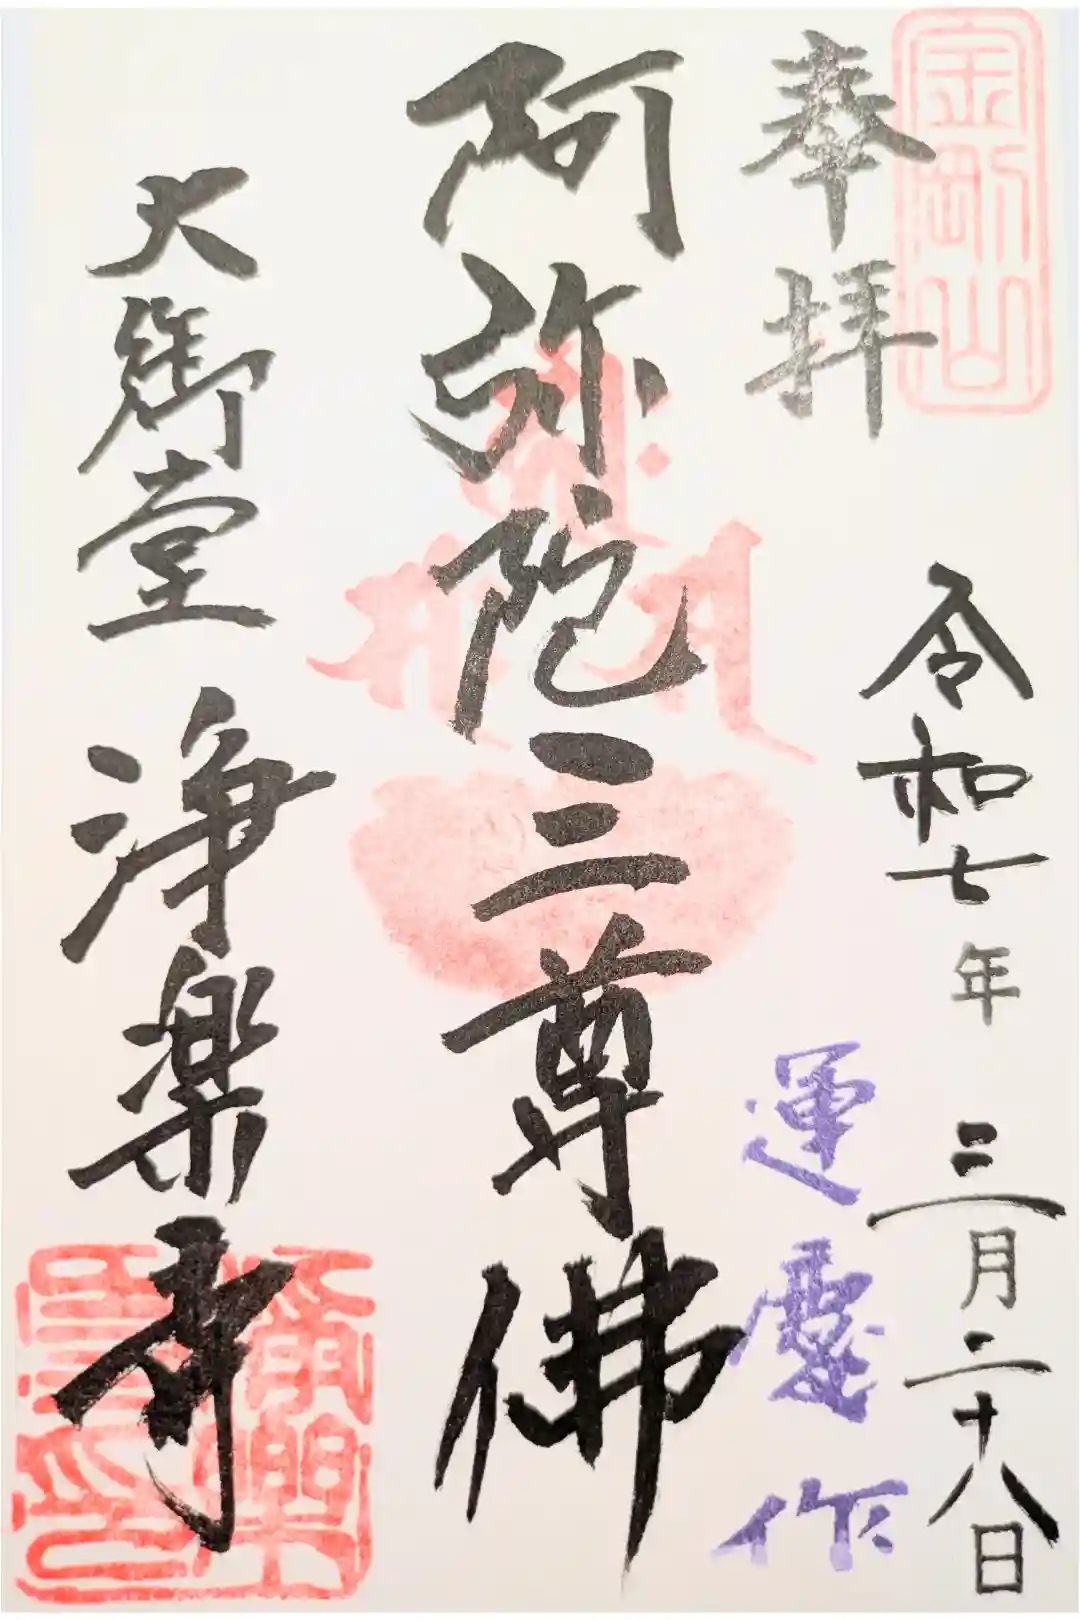 金剛山
奉拝
令和七年 三月二十八日
運慶作
阿弥陀三尊佛
大御堂 浄楽寺